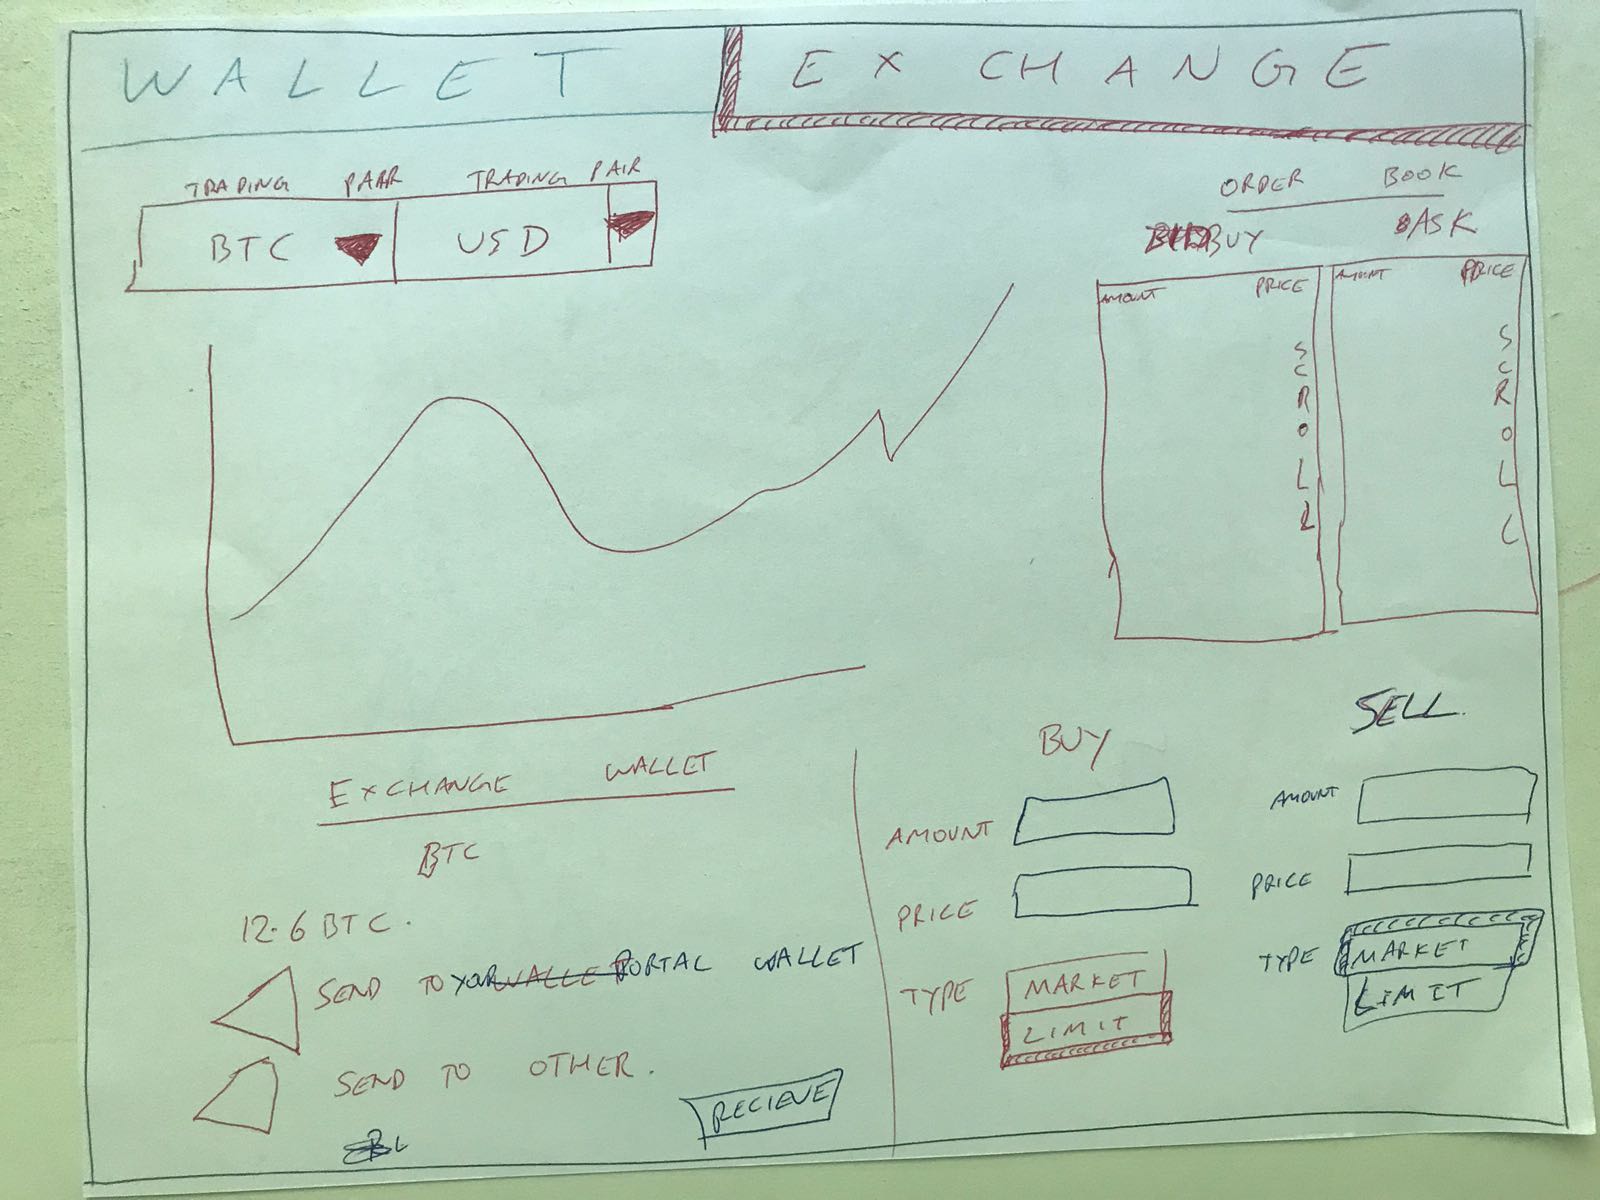 WALLET EXCHANGE
TRADING PAIR TRADING PAIR
BTC USD
ORDER BOOK
BUY ASK
AMOUNT PRICE AMOUNT PRICE
SCROLL SCROLL
EXCHANGE WALLET
BTC
12.6 BTC.
SEND TO YOUR PORTAL WALLET
SEND TO OTHER.
RECIEVE
BUY
AMOUNT
PRICE
TYPE MARKET
LIMIT
SELL
AMOUNT
PRICE
TYPE MARKET
LIMIT